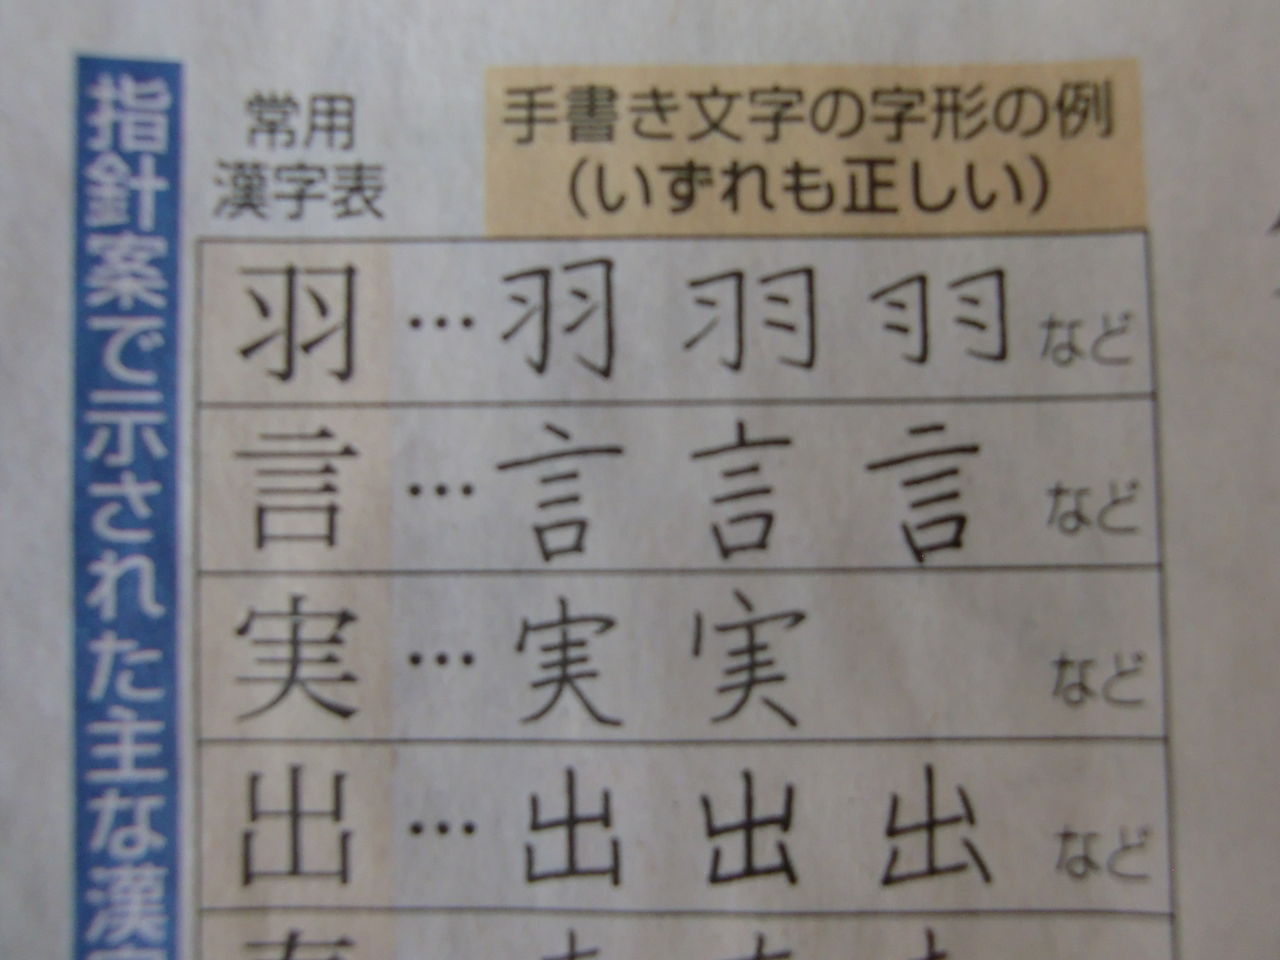 指針案で示された主な漢
常用
漢字表
手書き文字の字形の例
(いずれも正しい)
羽 … 羽 羽 羽 など
言 … 言 言 言 など
実 … 実 実 など
出 … 出 出 出 など